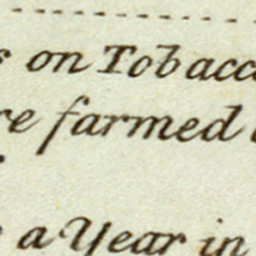 on Tobacc
farmed
a Year in